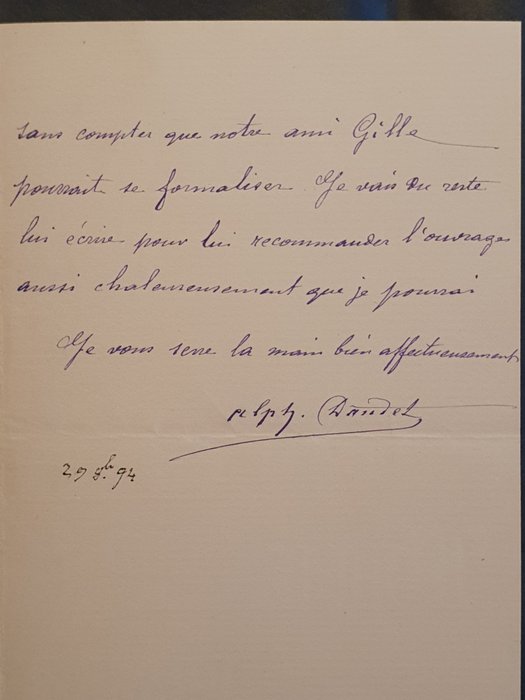 sans compter que notre ami Gille
pourrait se formaliser. Je vais du reste
lui écrire pour lui recommander l'ouvrage
aussi chaleureusement que je pourrai
Je vous serre la main bien affectueusement
Alph. Daudet
29 8.bre 94